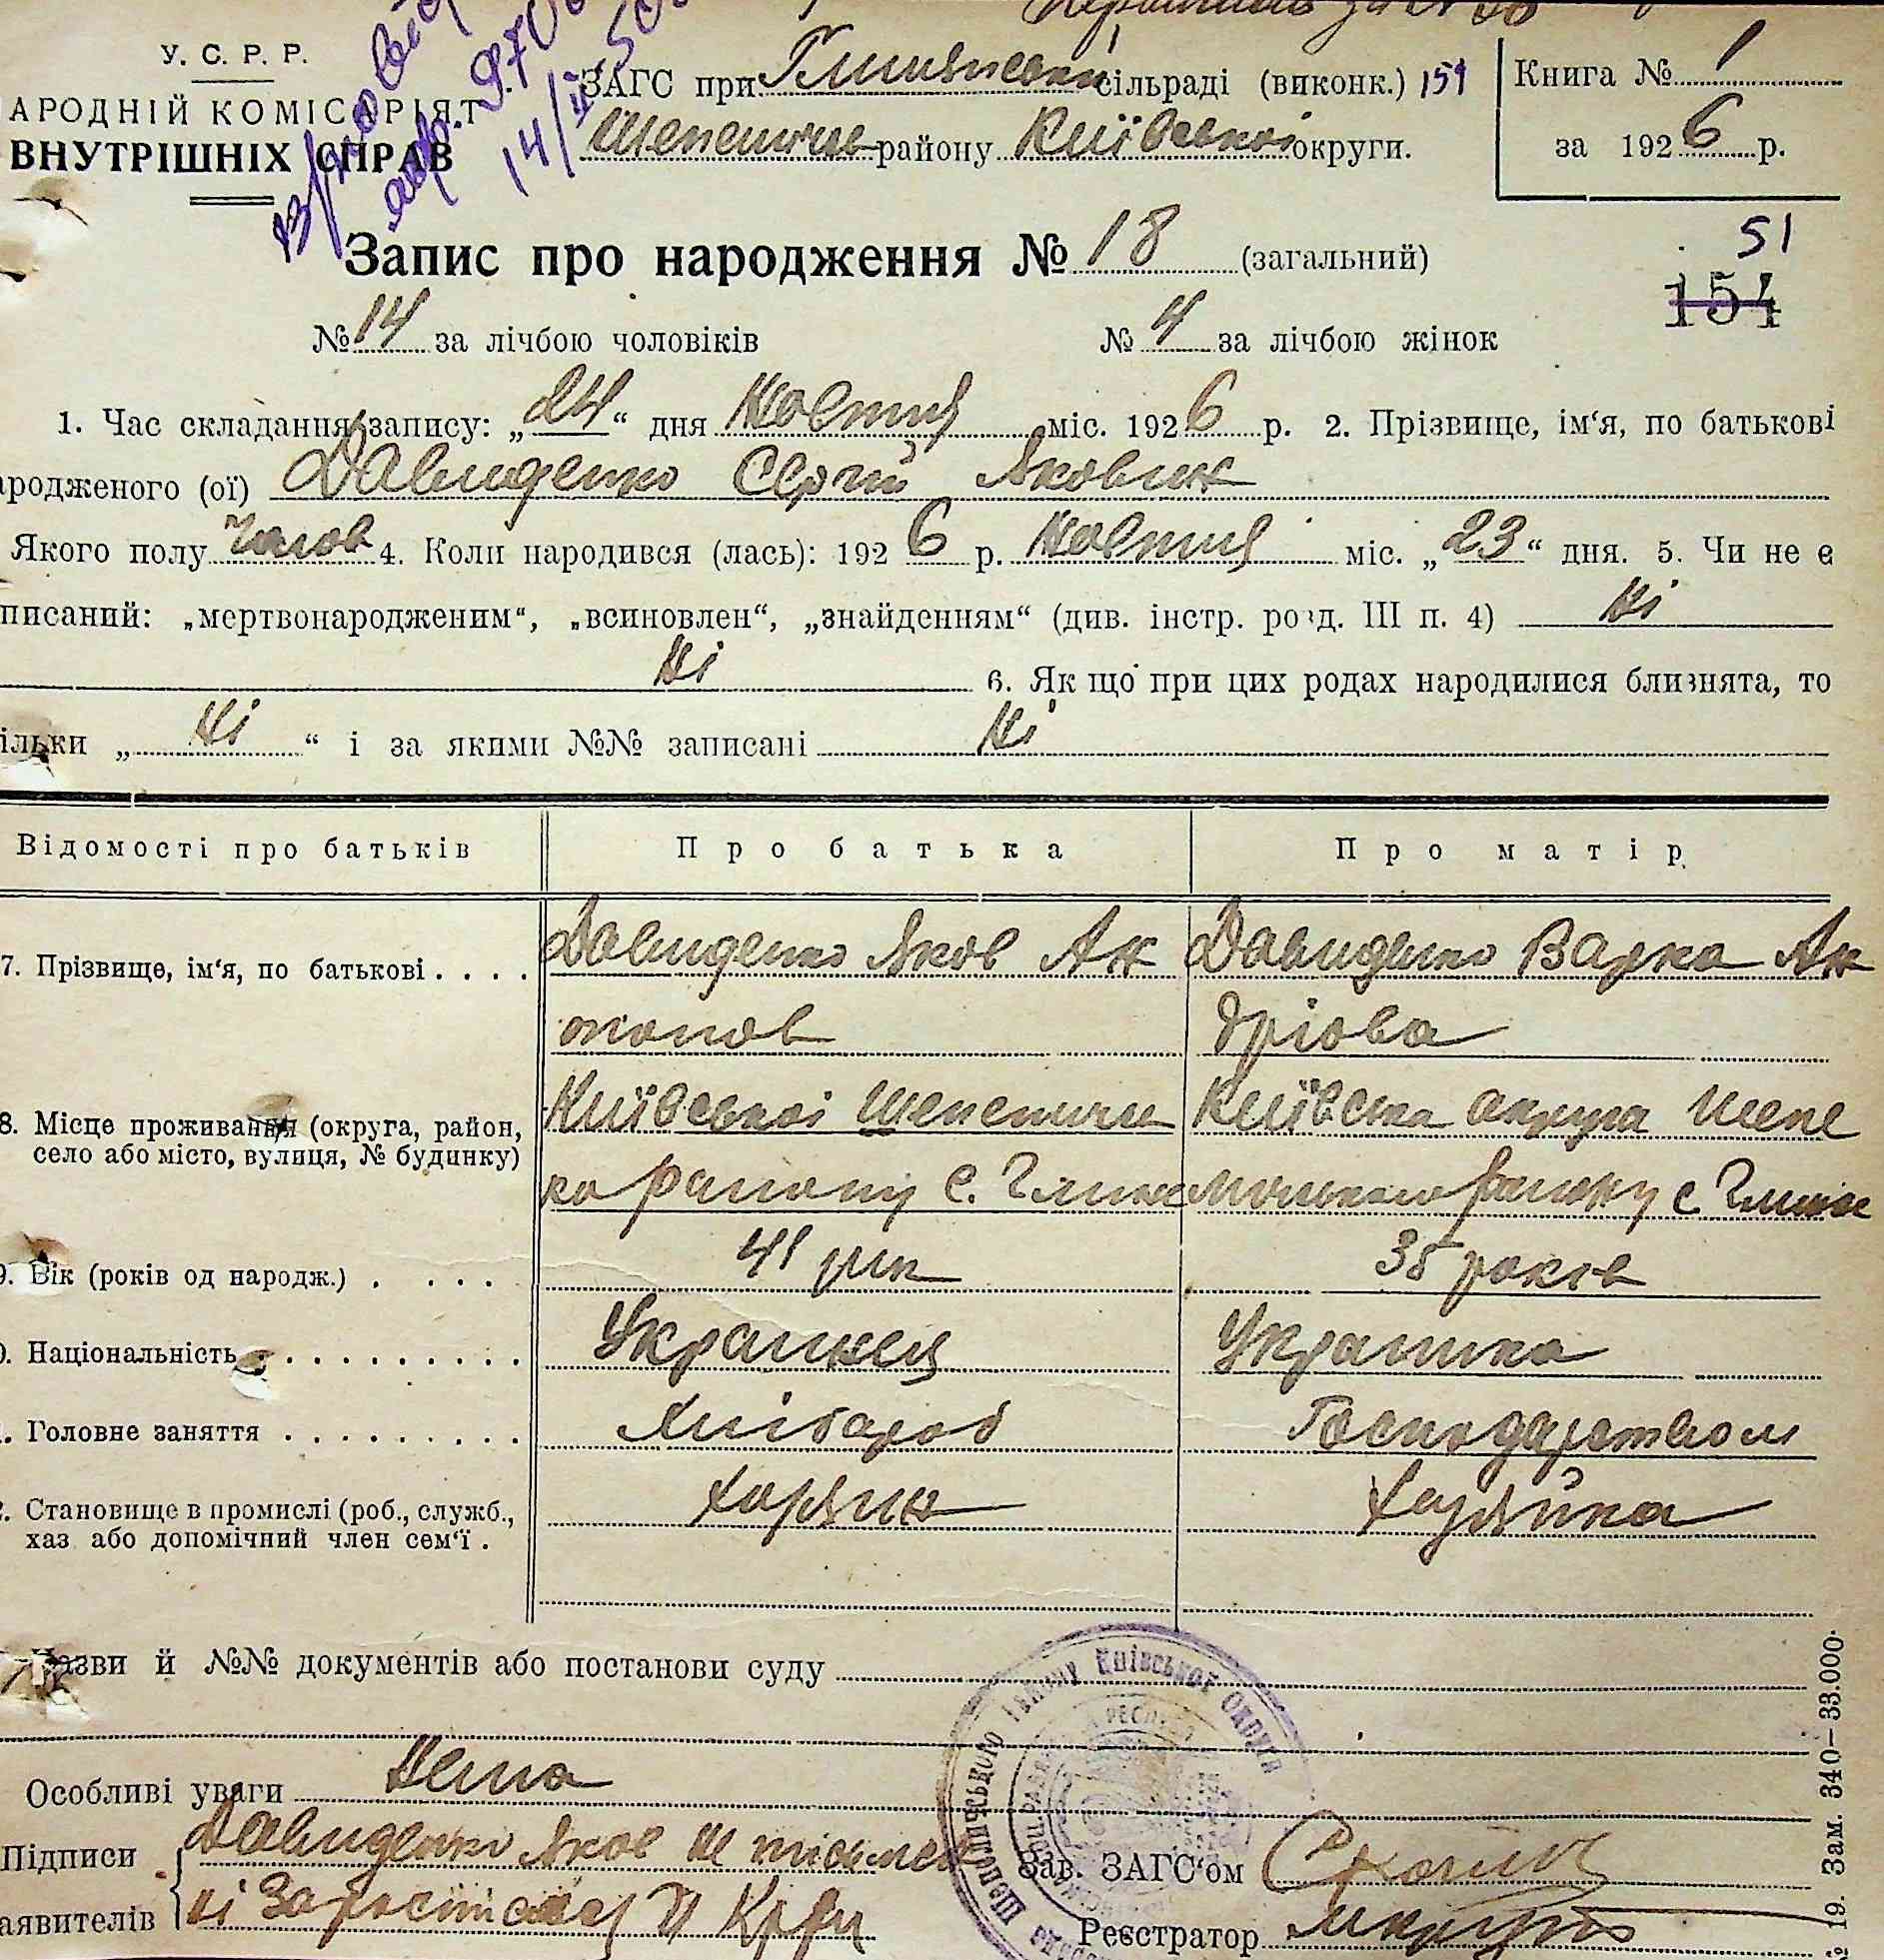 У. С. Р. Р.
АРОДНІЙ КОМІСАРІЯТ
ВНУТРІШНІХ СПРАВ
14/II 50
ЗАГС при сільраді (виконк.) 151
району Київської округи.
Книга № 1
за 1926 р.
Запис про народження № 18 (загальний)
51
154
№ 14 за лічбою чоловіків № 4 за лічбою жінок
1. Час складання запису: „24“ дня Жовтня міс. 1926 р. 2. Прізвище, ім‘я, по батькові
ародженого (ої) Давиденко Сергій Якович
Якого полу Чолов 4. Коли народився (лась): 1926 р. Жовтня міс. „23“ дня. 5. Чи не є
писаний: „мертвонародженим“, „всиновлен“, „знайденням“ (див. інстр. розд. III п. 4) Ні
Ні 6. Як що при цих родах народилися близнята, то
ільки „Ні“ і за якими №№ записані Ні
Відомості про батьків Про батька Про матір
7. Прізвище, ім‘я, по батькові . . . . Давиденко Яков Ан Давиденко Варка Ан
тонов дріова
8. Місце проживання (округа, район, Київської Шепеличи Київська округа Шепе
село або місто, вулиця, № будинку)
ко району с. району с.
9. Вік (років од народж.) . . . . 41 рік 35 років
0. Національність . . . . . . . . . . Украинец Украинка
. Головне заняття . . . . . . . . . Хлібороб Господарством
. Становище в промислі (роб., служб., Хазяин Хазяйка
хаз або допомічний член сем‘ї .
Назви й №№ документів або постанови суду
Особливі уваги Нема
Підписи Давиденко Яков
аявителів ні За
Зав. ЗАГС‘ом
Реєстратор
Шепелицького Київської Округи
№ 19. Зам. 340—33.000.